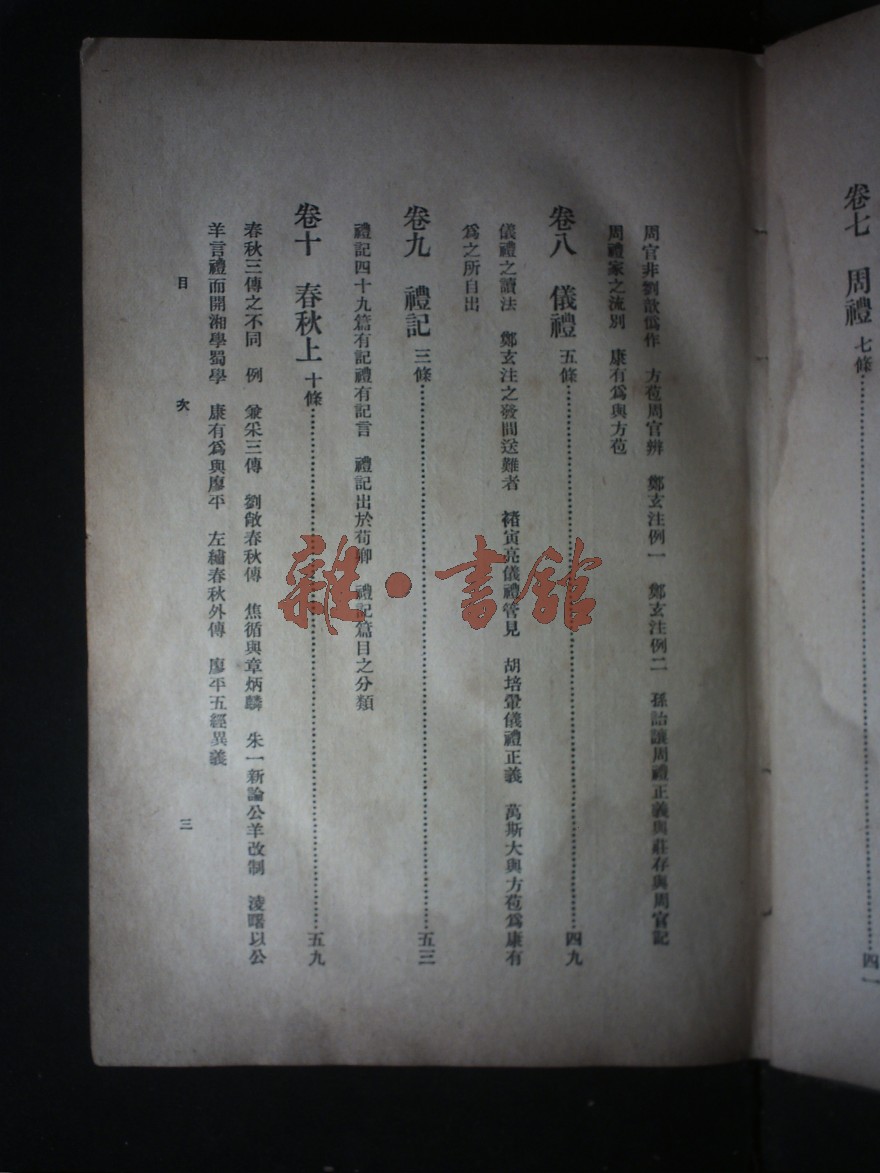 卷七 周禮 七條……四一
周官非劉歆僞作 方苞周官辨 鄭玄注例一 鄭玄注例二 孫詒讓周禮正義與莊存與周官記
周禮家之流別 康有爲與方苞
卷八 儀禮 五條……四九
儀禮之讀法 鄭玄注之發問送難者 褚寅亮儀禮管見 胡培翬儀禮正義 萬斯大與方苞爲康有
爲之所自出
卷九 禮記 三條……五三
禮記四十九篇有記禮有記言 禮記出於荀卿 禮記篇目之分類
卷十 春秋上 十條……五九
春秋三傳之不同 例 兼采三傳 劉敞春秋傳 焦循與章炳麟 朱一新論公羊改制 淩曙以公
羊言禮而開湘學蜀學 康有爲與廖平 左繡春秋外傳 廖平五經異義
目 次 三
雜·書館